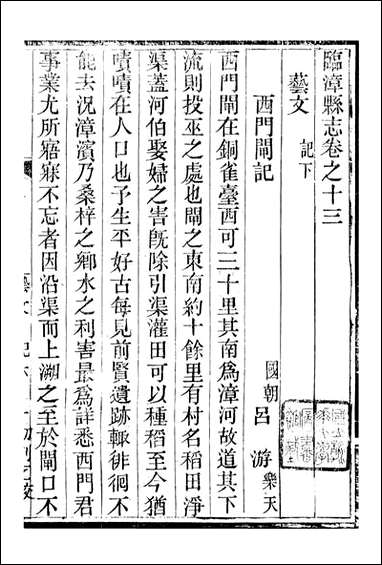 臨漳縣志卷之十三
藝文 記下
西門閘記 國朝 呂游 樂天
西門閘在銅雀臺西可三十里其南爲漳河故道其下
流則投巫之處也閘之東南約十餘里有村名稻田淨
渠蓋河伯娶婦之害旣除引渠灌田可以種稻至今猶
嘖嘖在人口也予生平好古每見前賢遺跡輒徘徊不
能去況漳濱乃桑梓之鄕水之利害最爲詳悉西門君
事業尤所寤寐不忘者因沿渠而上溯之至於閘口不